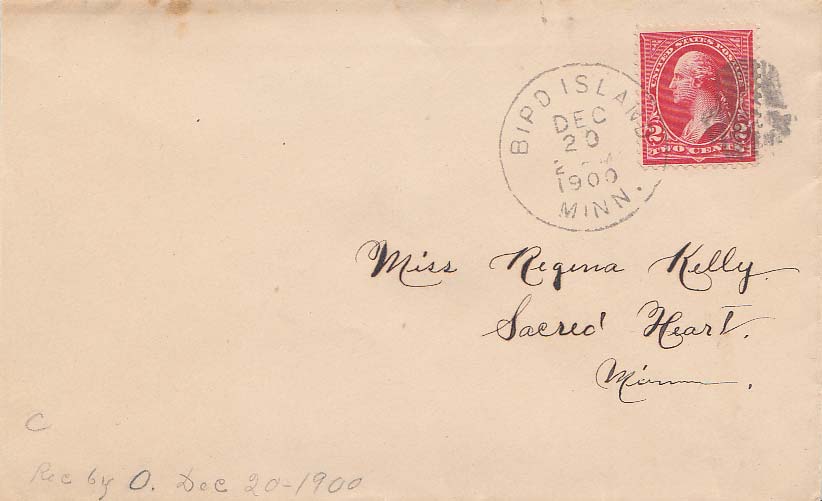 UNITED STATES POSTAGE
2 2
TWO CENTS
BIRD ISLAND
DEC
20
1900
MINN.
Miss Regina Kelly
Sacred Heart.
Minn.
C
Rec by O. Dec 20-1900